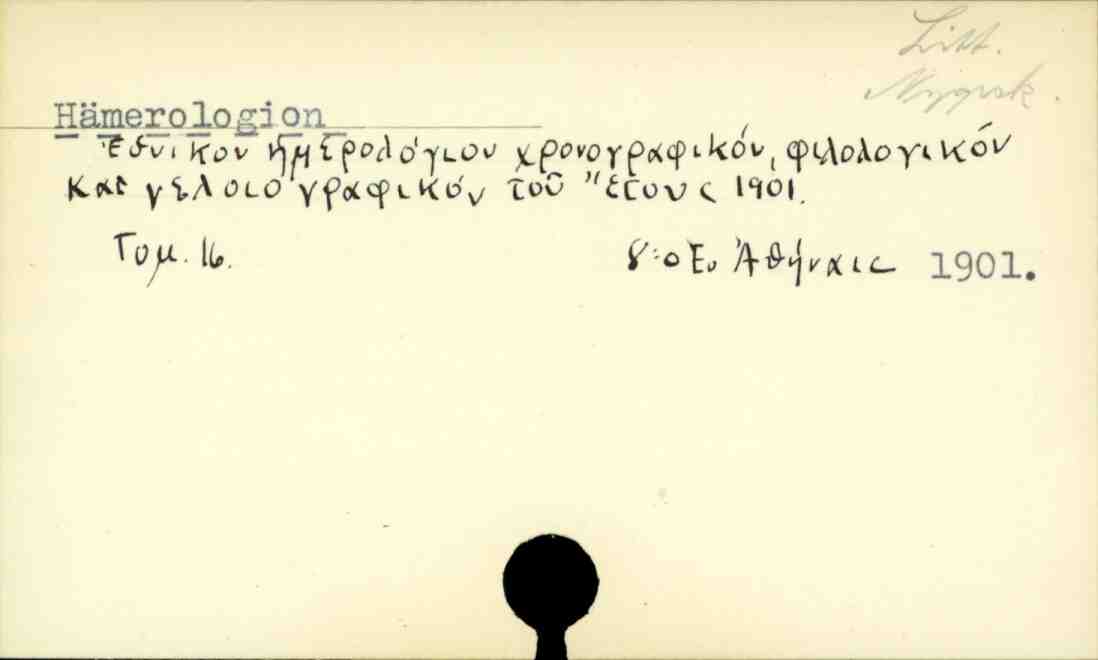 Litt.
Nygrek.
Hämerologion
Ἐθνικον ἡμερολόγιον χρονογραφικόν, φιλολογικόν
και γελοιογραφικόν τοῦ ἔτους 1901.
Τομ. 16.
8:o Ἐν Ἀθήναις 1901.